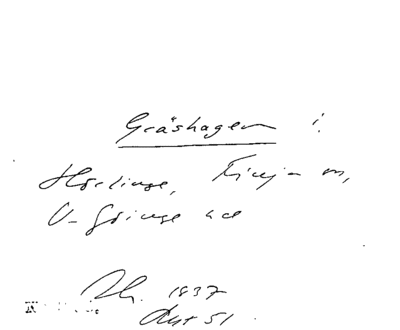 Gräshagen i
Hörlinge, Finja sn,
V. Göinge hd
Lh. 1837
Akt 51